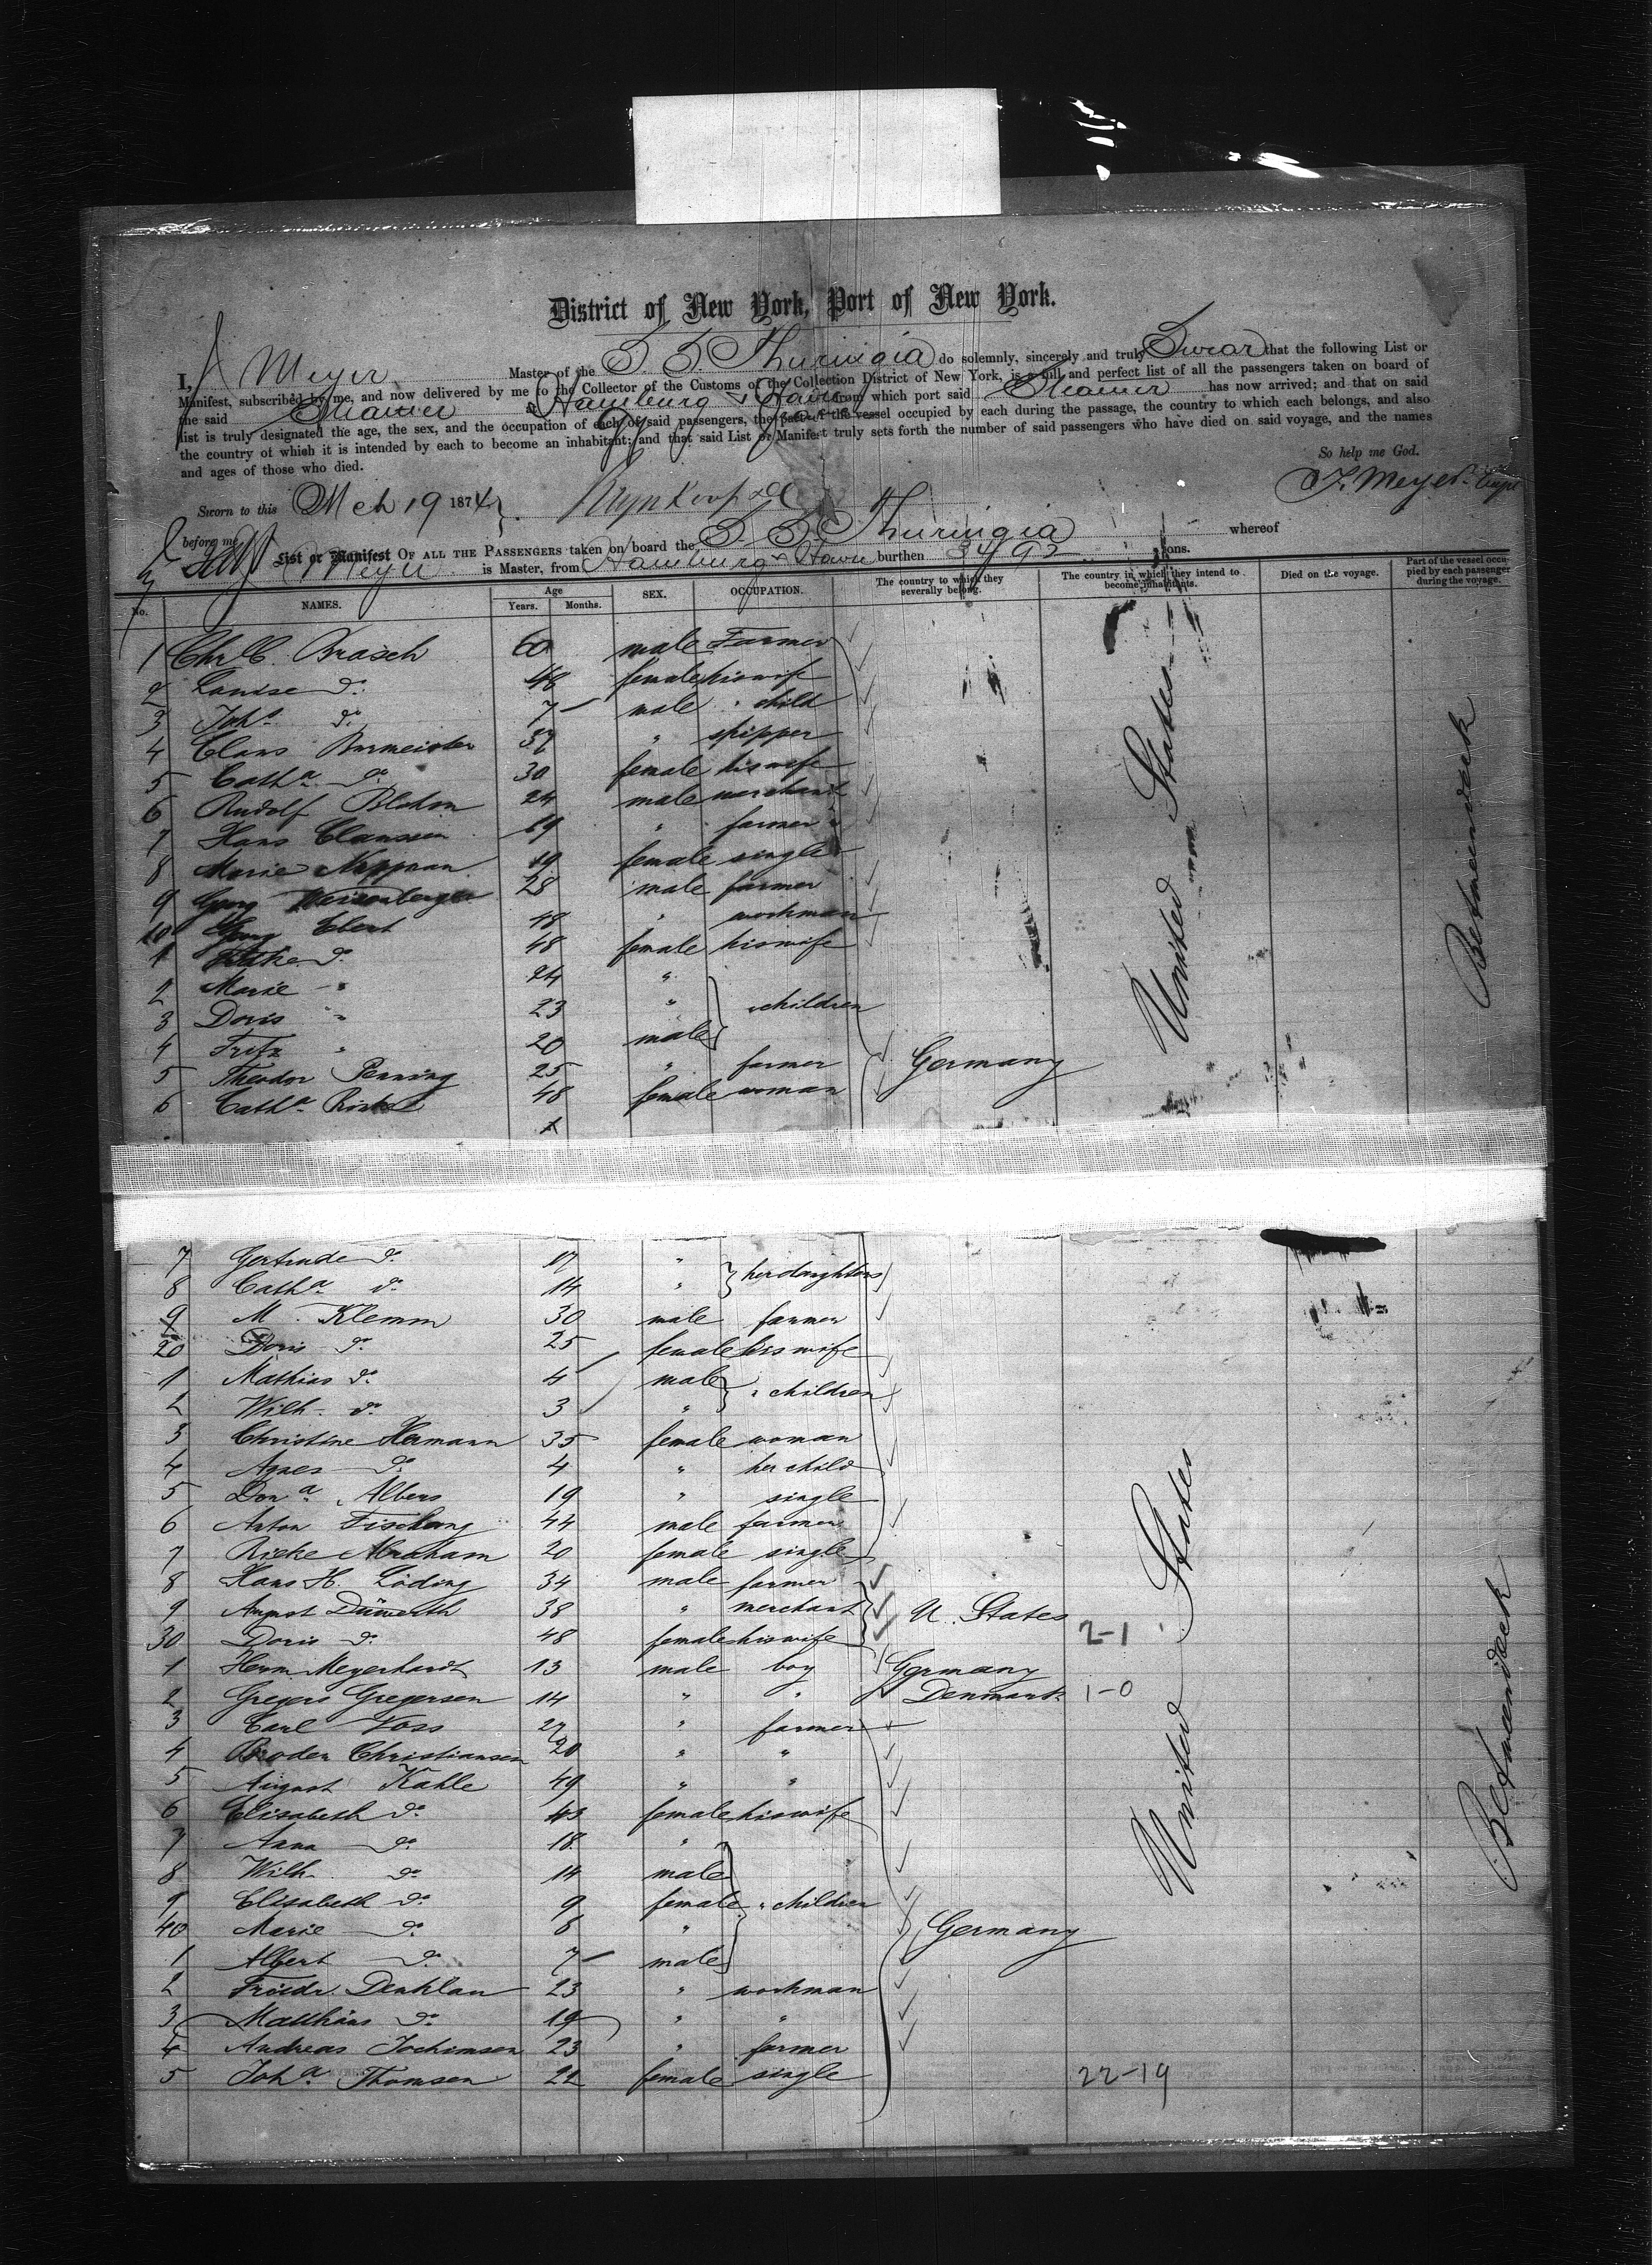 District of New York, Port of New York.
I, Meyer Master of the S. S. Thuringia do solemnly, sincerely and truly Swear that the following List or
Manifest, subscribed by me, and now delivered by me to the Collector of the Customs of the Collection District of New York, is a full and perfect list of all the passengers taken on board of
the said Steamer Hamburg & Havre from which port said Steamer has now arrived; and that on said
list is truly designated the age, the sex, and the occupation of each of said passengers, the part of the vessel occupied by each during the passage, the country to which each belongs, and also
the country of which it is intended by each to become an inhabitant; and that said List or Manifest truly sets forth the number of said passengers who have died on said voyage, and the names
and ages of those who died.
So help me God.
Sworn to this Mch 19 1874
F. Meyer
before me
List or Manifest OF ALL THE PASSENGERS taken on board the S. S. Thuringia whereof
Meyer is Master, from Hamburg & Havre burthen tons.
No. NAMES. Age Years. Months. SEX. OCCUPATION. The country to which they severally belong. The country in which they intend to become inhabitants. Died on the voyage. Part of the vessel occupied by each passenger during the voyage.
1 Chr. C. Brasch 60 male Farmer
2 Louise do 48 female his wife
3 Joh. do 7 male " child
4 Claus Burmeister 37 " skipper
5 Cath.a do 30 female his wife
6 Rudolf Blohm 24 male merchant
7 Hans Claussen 19 " farmer
8 Marie 19 female single
9 Georg Weissenberger 28 male farmer
10 Georg Ebert 48 " workman
1 do 48 female his wife
2 Marie " 24 "
3 Doris " 23 " " children
4 Fritz " 20 male
5 Theodor Penning 25 " farmer Germany
6 Cath.a 48 female woman
United States
Betweendeck
7 Gertrude do 17 "
8 Cath.a do 14 " her daughters
9 M. Klemm 30 male farmer
20 Doris do 25 female his wife
1 Mathias do 4 male " children
2 Wilh. do 3 "
3 Christine Hermann 35 female woman
4 Agnes do 4 " her child
5 Dor.a Albers 19 " single
6 Anton 44 male farmer
7 Rieke Abraham 20 female single
8 Hans H. Löding 34 male farmer
9 August 38 " merchant U. States
30 Doris do 48 female his wife 2-1
1 Herm Meyerhardt 13 male boy Germany
2 Gregers Gregersen 14 " " Denmark 1-0
3 Carl Voss 27 " farmer
4 Broder Christiansen 20 " "
5 August Kahle 49 " "
6 Elisabeth do 43 female his wife
7 Anna do 18 "
8 Wilh. do 14 male
9 Elisabeth do 9 female " children
40 Marie do 8 " Germany
1 Albert do 7 male
2 Friedr. Denklau 23 " workman
3 Matthias do 19 " "
4 Andreas Jochimsen 23 " farmer
5 Joh.a Thomsen 22 female single 22-19
United States
Betweendeck